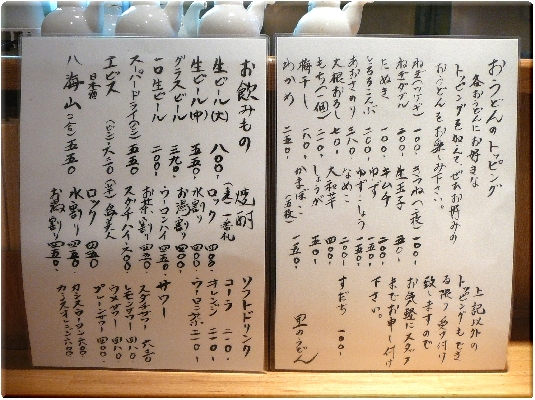 おうどんのトッピング
各おうどんにお好きな
トッピングを加えて、ぜひお好みの
おうどんをお楽しみ下さい。
ねぎダブル 一〇〇-
たぬき 一〇〇-
とろろこんぶ
あおさのり 三八〇
大根おろし 七〇-
もち(一個)
梅干し
わかめ 二五〇-
きつね(一枚) 一〇〇-
生玉子 五〇-
キムチ
ゆず
ゆずこしょう
なめこ 二〇〇-
大和芋
しょうが 五〇-
かまぼこ
すだち 一〇〇-
上記以外の
トッピングもでき
る限り受け付け
致しますので
お気軽にスタッフ
までお申し付け
下さい。
里のうどん
お飲みもの
生ビール(大) 八〇〇-
生ビール(中)
グラスビール 三九〇-
一口生ビール 二〇〇-
スーパードライ 五五〇
エビス
日本酒
八海山(一合) 五五〇
焼酎
(麦)一番札
ロック 四五〇
水割り
お湯割り 四五〇
ウーロンハイ
お茶割り 四五〇
スダチハイ 六〇〇
ロック 四五〇
水割り 四五〇
お湯割り 四五〇
ソフトドリンク
コーラ 二一〇-
オレンジ 二一〇-
ウーロン茶
サワー
スダチサワー
レモンサワー 四八〇
ウメサワー 四八〇
プレーンサワー
カシスウーロン 六〇〇
カシスオレンジ 六〇〇